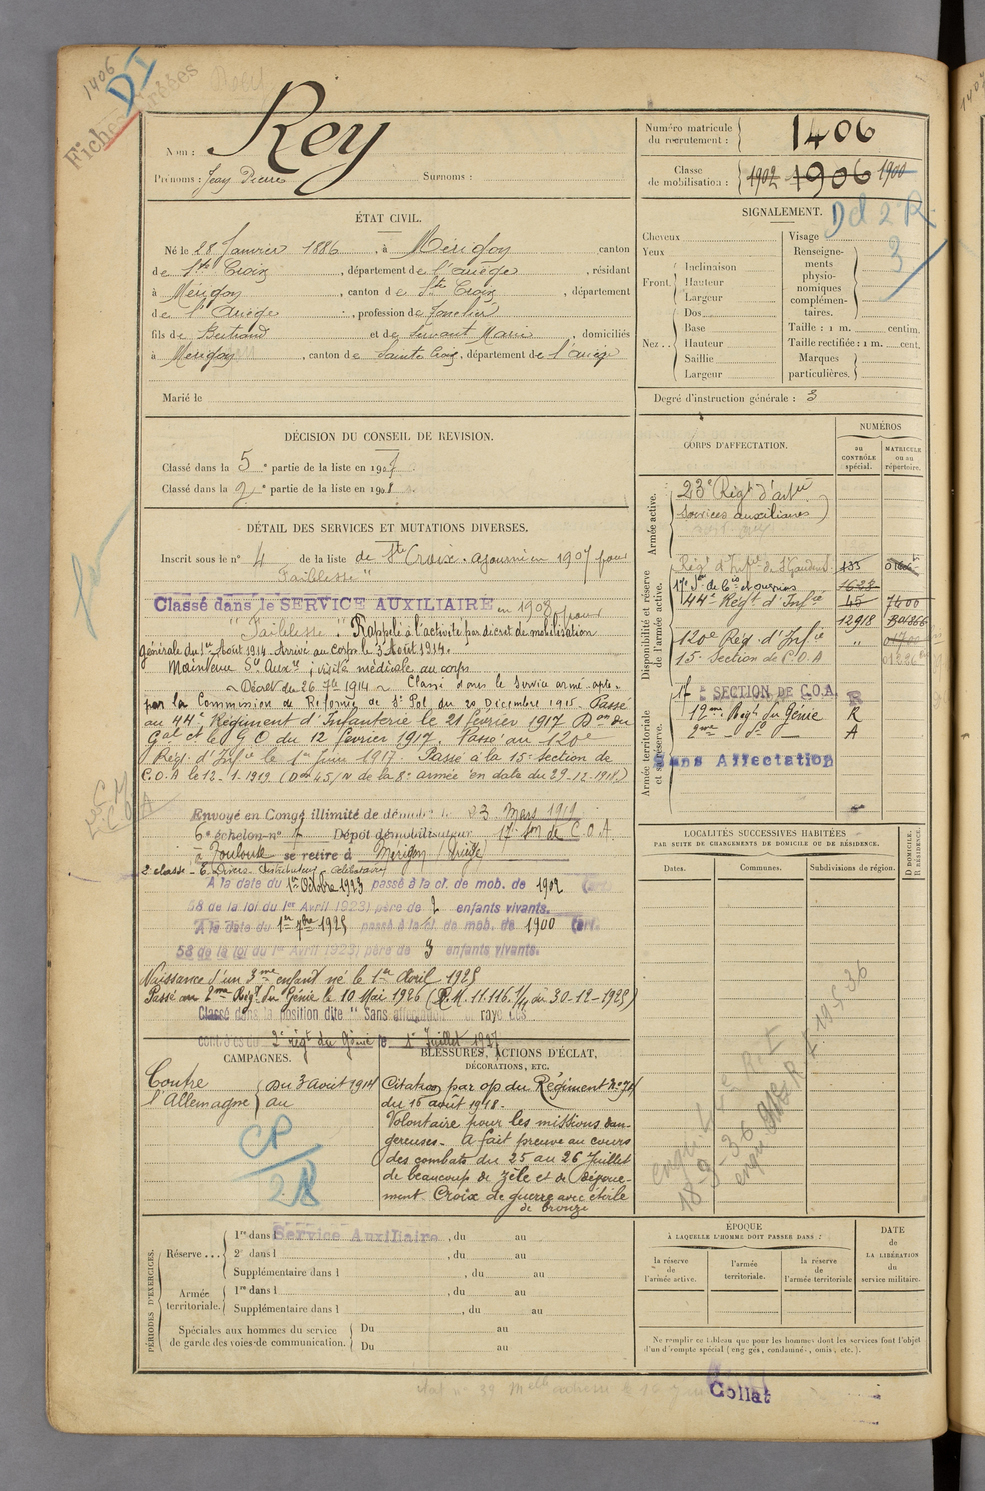 1406
DI
Fiches
Rey
Nom :
Prénoms : Jean Pierre Surnoms :
ÉTAT CIVIL.
Né le 28 Janvier 1886, à Mérigon canton
de Ste Croix, département de l'Ariège, résidant
à Mérigon, canton de Ste Croix, département
de l'Ariège, profession de
fils de Bertrand et de Servant Marie, domiciliés
à Mérigon, canton de Sainte Croix, département de l'Ariège
Marié le
DÉCISION DU CONSEIL DE REVISION.
Classé dans la 5e partie de la liste en 1907.
Classé dans la 2e partie de la liste en 1908.
DÉTAIL DES SERVICES ET MUTATIONS DIVERSES.
Inscrit sous le no 4 de la liste de Ste Croix. ajourné en 1907 pour
Faiblesse"
Classé dans le SERVICE AUXILIAIRE en 1908 pour
"Faiblesse." Rappelé à l'activité par décret de mobilisation
générale du 1er Août 1914. Arrivé au corps le 3 Août 1914.
Maintenu Sce Auxre ; visite médicale au corps
Décret du 26 7bre 1914. Classé dans le Service armé apte.
par la Commission de Réforme de St Pol du 20 Décembre 1915. Passé
au 44e Régiment d'Infanterie le 21 février 1917 Don du
Gal et le G O du 12 février 1917. Passé au 120e
Rég. d'Infie le 1er Juin 1917 Passé à la 15e Section de
C.O.A le 12.1.1919 (Don 45/N de la 8e armée en date du 29-12-1918)
Envoyé en Congé illimité de démob le 23 Mars 1919
6e échelon no 7 Dépôt démobilisateur 17e Son de C.O.A.
à Toulouse se retire à Mérigon Ariège
A la date du 1er Octobre 1923 passé à la cl. de mob. de 1902 (art.
58 de la loi du 1er Avril 1923) père de 2 enfants vivants.
A la date du 1er 7bre 1925 passé à la cl. de mob. de 1900 (art.
58 de la loi du 1er Avril 1923) père de 3 enfants vivants.
Naissance d'un 3me enfant né le 1er Avril 1925
Passé au 2me Régt du Génie le 10 Mai 1926 (D.M. 11.116. 1/11 du 30-12-1925)
Classé dans la position dite "Sans affectation" et rayé des
contrôles du 2e régt du Génie le 1er Juillet 1927
CAMPAGNES.
Contre
l'Allemagne
Du 3 août 1914
au
CP
BLESSURES, ACTIONS D'ÉCLAT,
DÉCORATIONS, ETC.
Citation par op du Régiment No 74
du 16 août 1918.
Volontaire pour les missions dan-
gereuses. A fait preuve au cours
des combats du 25 au 26 Juillet
de beaucoup de zèle et de dévoue-
ment. Croix de guerre avec étoile
de bronze
PÉRIODES D'EXERCICES.
Réserve ...
1re dans l Service Auxiliaire, du au
2e dans l , du au
Supplémentaire dans l , du au
Armée
territoriale.
1re dans l , du au
Supplémentaire dans l , du au
Spéciales aux hommes du service
de garde des voies de communication.
Du au
Du au
Numéro matricule
du recrutement :
1406
Classe
de mobilisation :
1902 1906 1900
SIGNALEMENT.
Dcl 2 R
3
Cheveux
Yeux
Front.
Inclinaison
Hauteur
Largeur
Nez..
Dos
Base
Hauteur
Saillie
Largeur
Visage
Renseigne-
ments
physio-
nomiques
complémen-
taires.
Taille : 1 m. centim.
Taille rectifiée : 1 m. cent.
Marques
particulières.
Degré d'instruction générale : 3
CORPS D'AFFECTATION.
NUMÉROS
au
CONTRÔLE
spécial.
MATRICULE
ou au
répertoire.
Armée active.
23e Régt d'artie
services auxiliaires
Disponibilité et réserve
de l'armée active.
Rég. d'Infie de St Gaudens. 133
1628
44e Régt d'Infie 45 7400
12918
120e Rég. d'Infie "
15e Section de C.O.A
Armée territoriale
et sa réserve.
17e SECTION DE C.O.A. R
12me Régt du Génie R
2me do A
Sans Affectation
LOCALITÉS SUCCESSIVES HABITÉES
PAR SUITE DE CHANGEMENTS DE DOMICILE OU DE RÉSIDENCE.
Dates.
Communes.
Subdivisions de région.
D DOMICILE.
R RÉSIDENCE.
ÉPOQUE
À LAQUELLE L'HOMME DOIT PASSER DANS :
la réserve
de
l'armée active.
l'armée
territoriale.
la réserve
de
l'armée territoriale
DATE
de
LA LIBÉRATION
du
service militaire.
Ne remplir ce tableau que pour les hommes dont les services font l'objet
d'un décompte spécial (engagés, condamnés, omis, etc.).
Collat